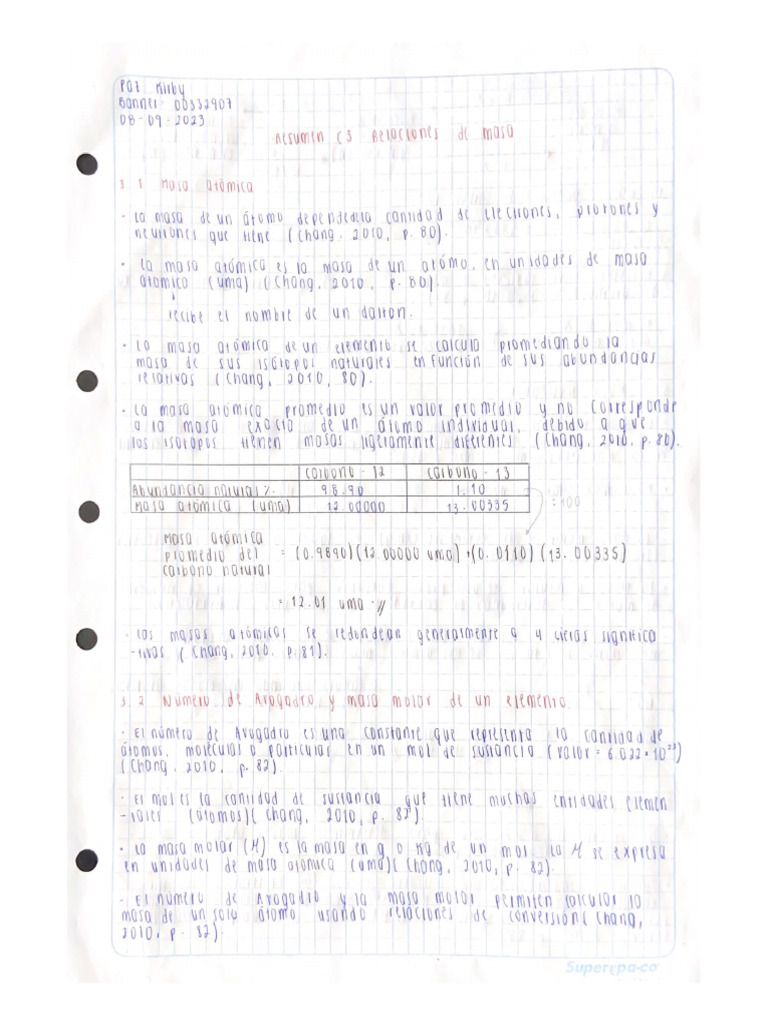 Paz Kirby
Banner: 00332907
08-09-2023
Resumen C3 Relaciones de masa
3.1 Masa atómica
· La masa de un átomo depende de la cantidad de electrones, protones y
neutrones que tiene (Chang, 2010, p. 80).
· La masa atómica es la masa de un átomo, en unidades de masa
atómica (uma) (Chang, 2010, p. 80).
recibe el nombre de un dalton.
· La masa atómica de un elemento se calcula promediando la
masa de sus isótopos naturales en función de sus abundancias
relativas (Chang, 2010, 80).
· La masa atómica promedio es un valor promedio y no corresponde
a la masa exacta de un átomo individual, debido a que
los isótopos tienen masas ligeramente diferentes (Chang, 2010, p. 80).
Carbono - 12 Carbono - 13
Abundancia natural %. 98.90 1.10
Masa atómica (uma) 12.00000 13.00335
÷100
Masa atómica
promedio del = (0.9890)(12.00000 uma) + (0.0110)(13.00335)
carbono natural
= 12.01 uma //
· Las masas atómicas se redondean generalmente a 4 cifras significa
-tivas (Chang, 2010, p. 81).
3.2 Número de Avogadro y masa molar de un elemento.
· El número de Avogadro es una constante que representa la cantidad de
átomos, moléculas o partículas en un mol de sustancia (valor = 6.022 × 10²³)
(Chang, 2010, p. 82).
· El mol es la cantidad de sustancia que tiene muchas entidades elemen
-tales (átomos) (Chang, 2010, p. 82).
· La masa molar (M) es la masa en g o kg de un mol. La M se expresa
en unidades de masa atómica (uma) (Chang, 2010, p. 82).
· El número de Avogadro y la masa molar permiten calcular la
masa de un solo átomo usando relaciones de conversión (Chang,
2010, p. 82).